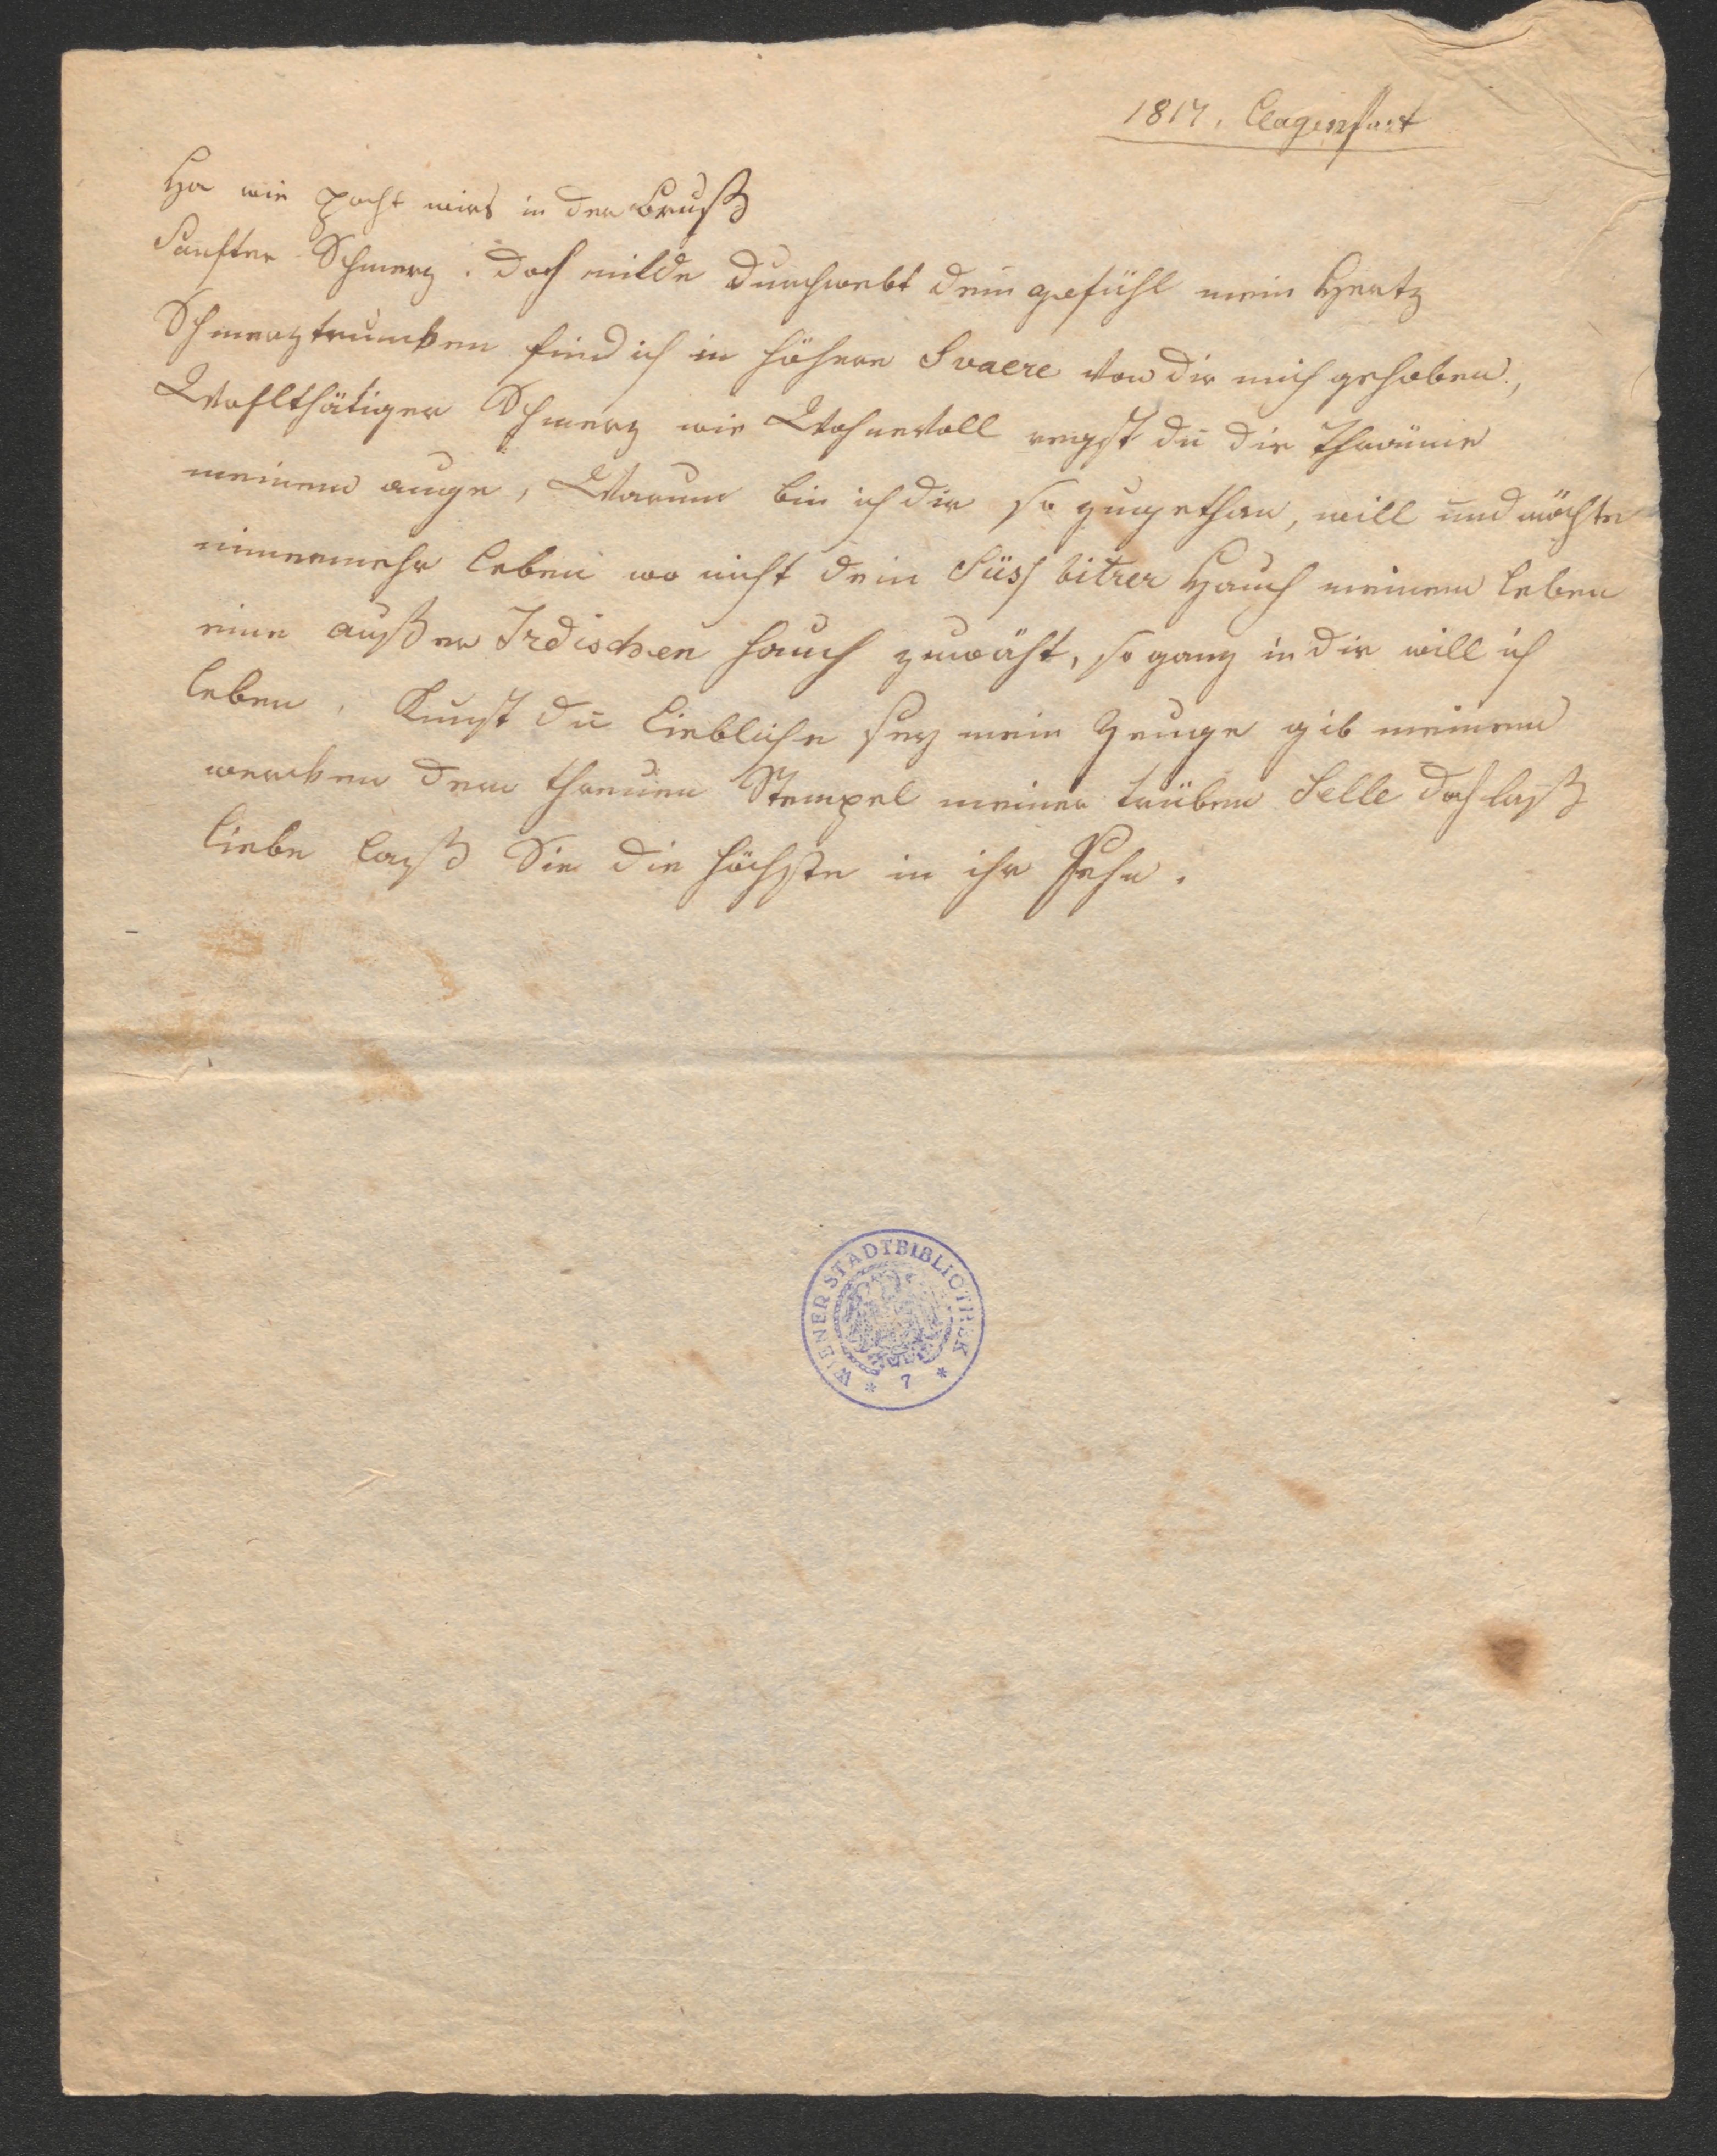 1817. Clagenfurt
Ha wie pocht mirs in der Brust
Sanfter Schmerz. doch milde durchwebt dein gefühl mein Hertz
Schmerztruncken find ich in höhere Svaere von dir mich gehoben.,
Wohlthätiger Schmerz wie Wohnevoll regst du die Thräune
meinem auge, Warum bin ich dir so zugethan, will und möchte
nimermehr leben wo nicht dein Süss bitrer Hauch meinem leben
eine außer Irdischen hauch zuwäht, so ganz in dir will ich
leben. Kunst du liebliche sey mein Zeuge gib meinem
wercken dem threuen Stempel meiner trüben Selle doch laß
liebe laß Sie die höchste in ihr sehn.
WIENER STADTBIBLIOTHEK
* 7 *